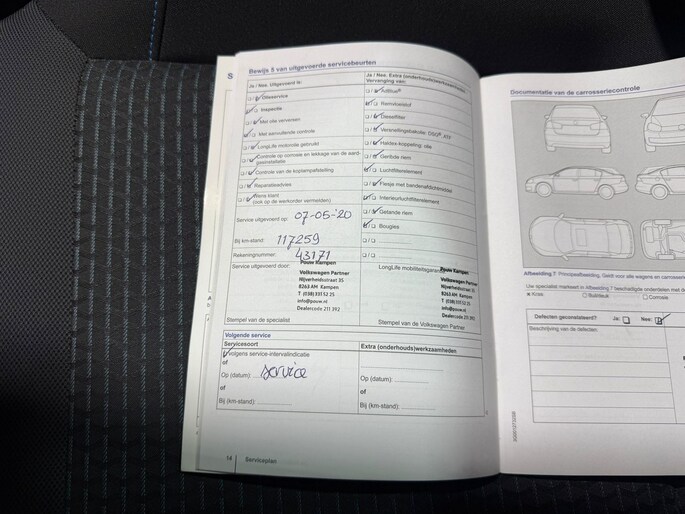 Bewijs 5 van uitgevoerde servicebeurten
Ja / Nee. Uitgevoerd is:
Olieservice
Inspectie
Met olie verversen
Met aanvullende controle
LongLife motorolie gebruikt
Controle op corrosie en lekkage van de aard-
gasinstallatie
Controle van de koplampafstelling
Reparatieadvies
Wens klant
(ook op de werkorder vermelden)
Service uitgevoerd op: 07-05-'20
Bij km-stand: 117259
Rekeningnummer: 43171
Service uitgevoerd door:
Pouw Kampen
Volkswagen Partner
Nijverheidsstraat 35
8263 AM Kampen
T (038) 331 52 25
info@pouw.nl
Dealercode 211 392
Stempel van de specialist
Ja / Nee. Extra (onderhouds)werkzaamheden
Vervanging van:
AdBlue®
Remvloeistof
Dieselfilter
Versnellingsbakolie: DSG®
Haldex koppeling: olie
Getande riem
Luchtfilterelement
Flesje met bandenafdichtmiddel
Interieurluchtfilterelement
Getande riem
Bougies
LongLife mobiliteitsgarantie
Pouw Kampen
Volkswagen Partner
Nijverheidsstraat 35
8263 AM Kampen
T (038) 331 52 25
info@pouw.nl
Dealercode 211 392
Stempel van de Volkswagen Partner
Volgende service
Servicesoort
volgens service-intervalindicatie
of
Op (datum): service
of
Bij (km-stand):
Extra (onderhouds)werkzaamheden
Op (datum):
of
Bij (km-stand):
14 Serviceplan
Documentatie van de carrosseriecontrole
Afbeelding 7 Principeafbeelding. Geldt voor alle wagens en carrosserie
Uw specialist markeert in Afbeelding 7 beschadigde onderdelen met de
Kras
Buil/deuk
Corrosie
Defecten geconstateerd? Ja: Nee:
Beschrijving van de defecten: